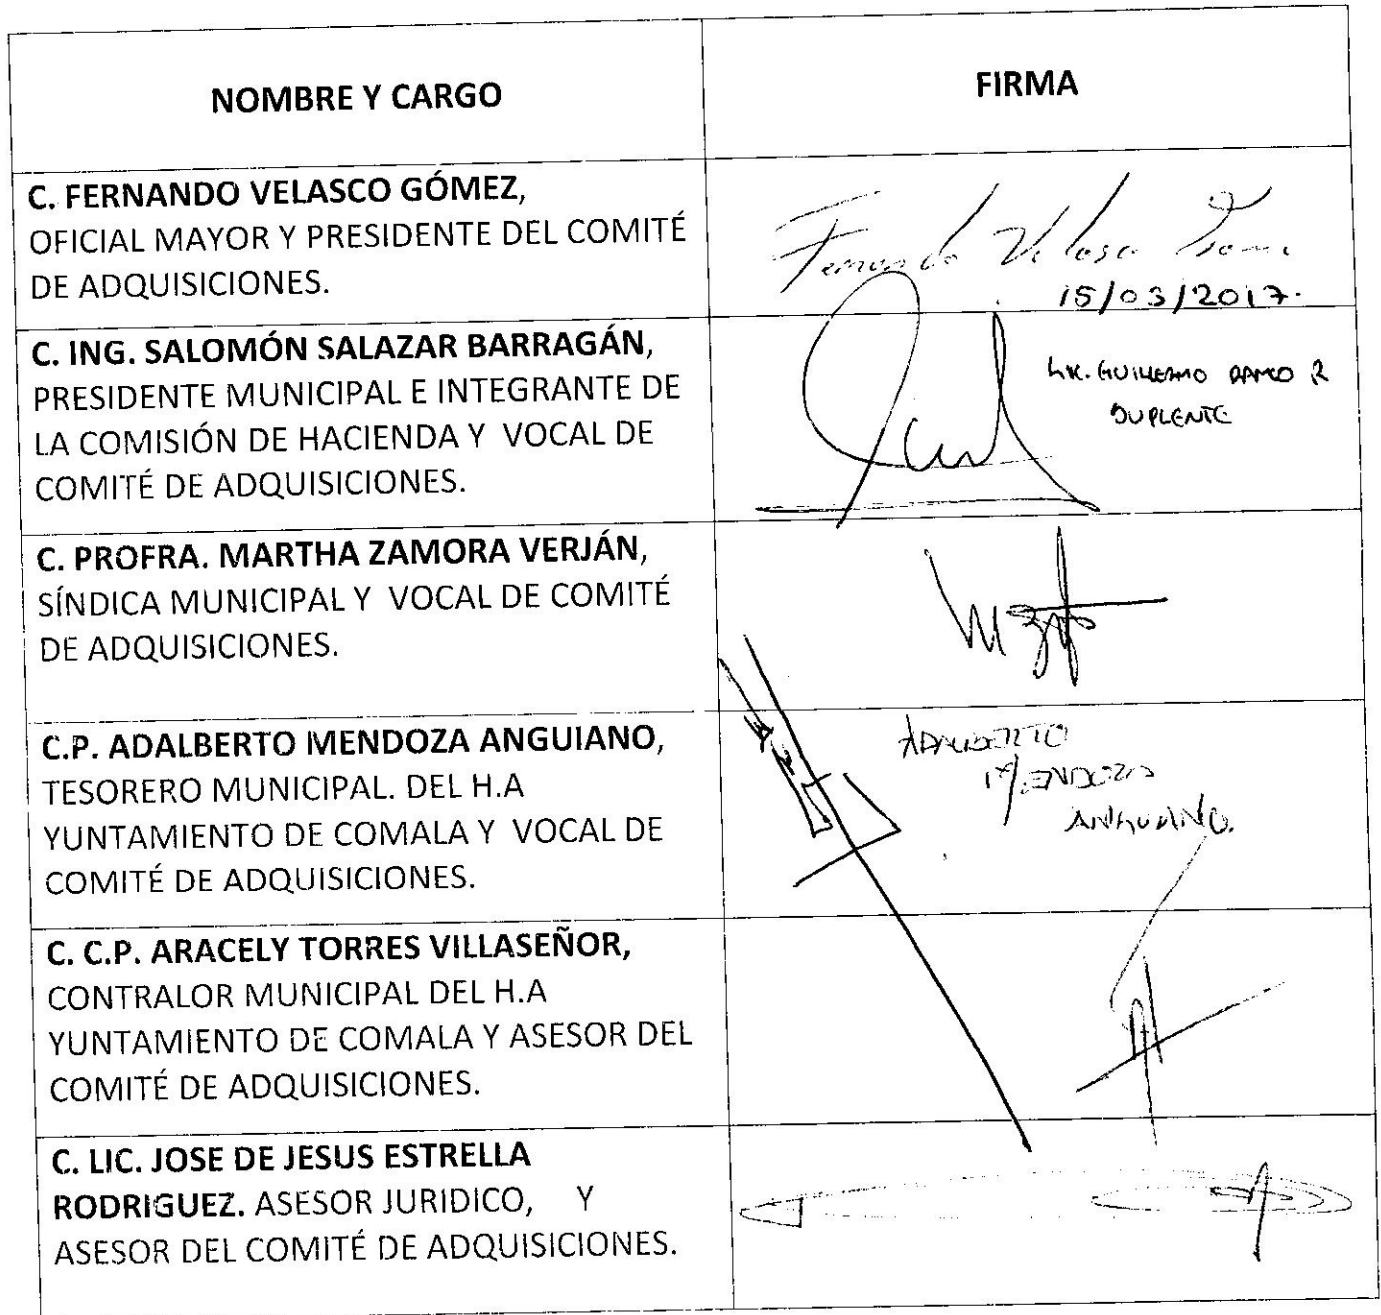 NOMBRE Y CARGO
FIRMA
C. FERNANDO VELASCO GÓMEZ,
OFICIAL MAYOR Y PRESIDENTE DEL COMITÉ
DE ADQUISICIONES.
Fernando Velasco Gómez
15/03/2017.
C. ING. SALOMÓN SALAZAR BARRAGÁN,
PRESIDENTE MUNICIPAL E INTEGRANTE DE
LA COMISIÓN DE HACIENDA Y VOCAL DE
COMITÉ DE ADQUISICIONES.
LIC. GUILLERMO R
SUPLENTE
C. PROFRA. MARTHA ZAMORA VERJÁN,
SÍNDICA MUNICIPAL Y VOCAL DE COMITÉ
DE ADQUISICIONES.
C.P. ADALBERTO MENDOZA ANGUIANO,
TESORERO MUNICIPAL. DEL H.A
YUNTAMIENTO DE COMALA Y VOCAL DE
COMITÉ DE ADQUISICIONES.
ADALBERTO
MENDOZA
ANGUIANO.
C. C.P. ARACELY TORRES VILLASEÑOR,
CONTRALOR MUNICIPAL DEL H.A
YUNTAMIENTO DE COMALA Y ASESOR DEL
COMITÉ DE ADQUISICIONES.
C. LIC. JOSE DE JESUS ESTRELLA
RODRIGUEZ. ASESOR JURIDICO, Y
ASESOR DEL COMITÉ DE ADQUISICIONES.